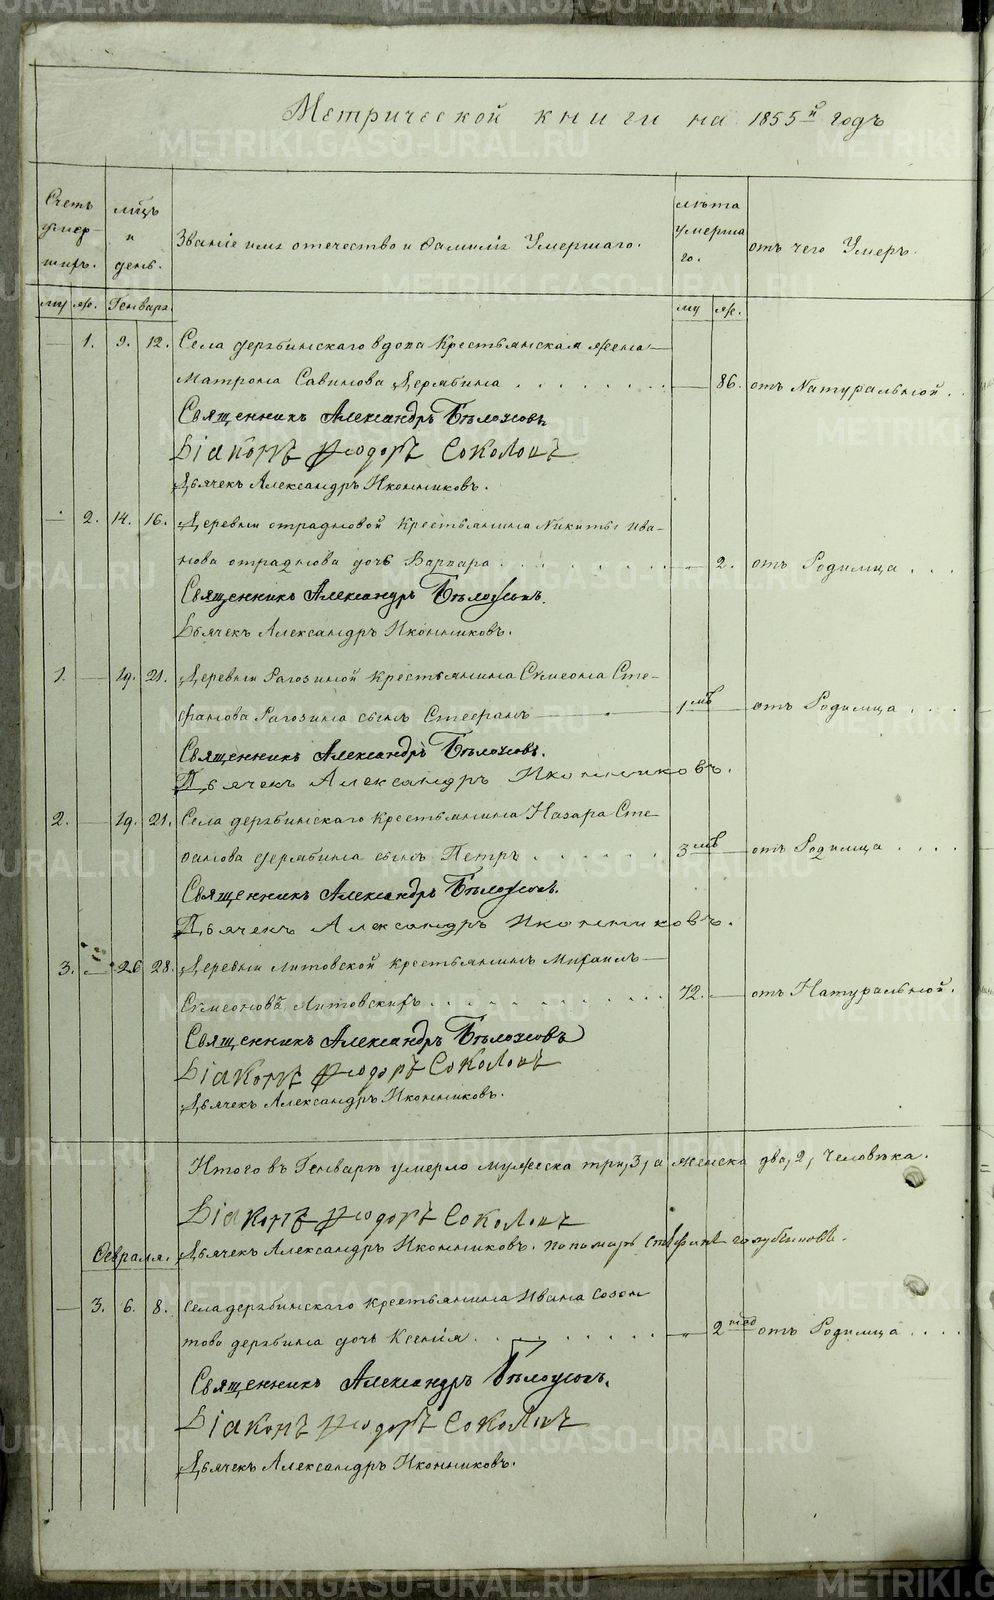 Метрической книги на 1855й годъ
Счетъ умер-шихъ.
мцъ и день.
Званіе имя отечество и фамилія Умершаго.
лѣта умерша го.
отъ чего Умеръ.
му же. Генваря. му же.
— 1. 9. 12. Села дерябинскаго вдова Крестьянская жена —
Матрона Савинова Дерябина . . . . . . . — 86. отъ Натуральной .
Священникъ Александръ Бѣлоусовъ
Діаконъ Ѳеодоръ Соколовъ
Дьячекъ Александръ Иконниковъ.
— 2. 14. 16. Деревни отрадновой Крестьянина Никиты Ива-
нова отраднова дочь Варвара . . . . . . . . — 2. отъ Родимца . . .
Священникъ Александръ Бѣлоусовъ.
Дьячекъ Александръ Иконниковъ.
1. — 19. 21. Деревни Рагозиной Крестьянина Симеона Сте-
фанова Рагозина сынъ Стефанъ — 1 мѣ — отъ Родимца . . .
Священникъ Александръ Бѣлоусовъ.
Дьячекъ Александръ Иконниковъ.
2. — 19. 21. Села дерябинскаго крестьянина Назара Сте
фанова дерябина сынъ Петръ . . . . . . 3 мѣ — отъ Родимца . . . .
Священникъ Александръ Бѣлоусовъ.
Дьячекъ Александръ Иконниковъ.
3. — 26 28. Деревни Литовской крестьянинъ Михаилъ —
Симеоновъ Литовскихъ . . . . . . . . . . . 72. — отъ Натуральной.
Священникъ Александръ Бѣлоусовъ
Діаконъ Ѳеодоръ Соколовъ
Дьячекъ Александръ Иконниковъ.
Итого въ Генварѣ умерло мужеска три, 3, а женска два, 2, Человѣка.
Діаконъ Ѳеодоръ Соколовъ
Февраля. Дьячекъ Александръ Иконниковъ. пономарь Стефанъ голубчиковъ.
— 3. 6. 8. села дерябинскаго крестьянина Ивана Созон
това дерябина дочь Ксенія . . . . . . . „ 2 нед отъ Родимца . . . .
Священникъ Александръ Бѣлоусовъ.
Діаконъ Ѳеодоръ Соколовъ
Дьячекъ Александръ Иконниковъ.
METRIKI.GASO-URAL.RU